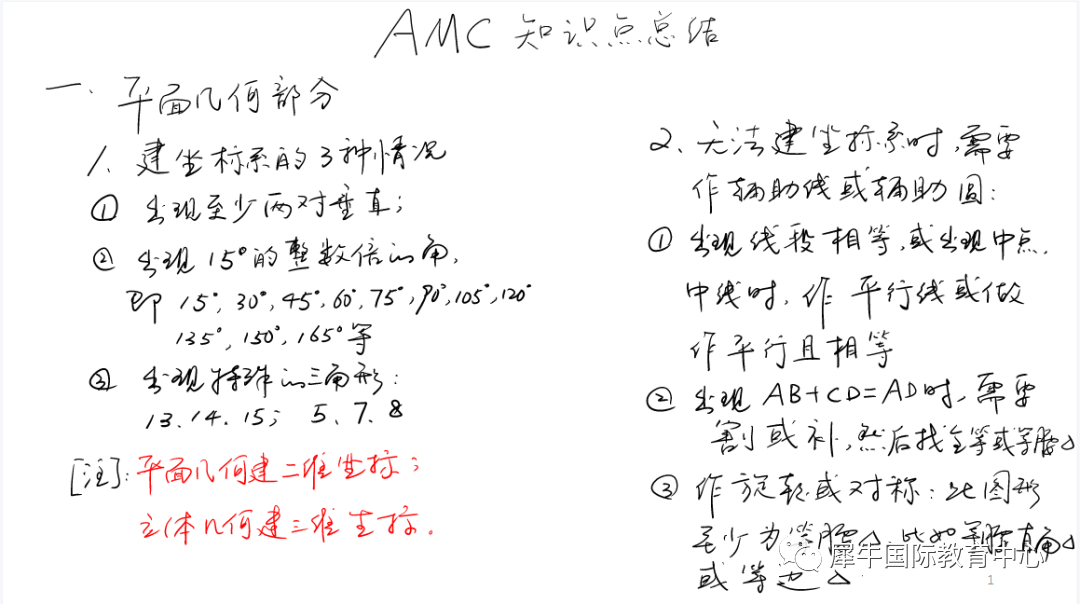 AMC 知识点总结
一、平面几何部分
1、建坐标系的3种情况
① 出现至少两对垂直;
② 出现15°的整数倍的角,
即 15°,30°,45°,60°,75°,90°,105°,120°
135°,150°,165°等
③ 出现特殊的三角形:
13.14.15; 5、7.8
[注]:平面几何建二维坐标;
立体几何建三维坐标.
2、无法建坐标系时,需要
作辅助线或辅助圆:
① 出现线段相等,或出现中点.
中线时,作平行线或做
作平行且相等
② 出现AB+CD=AD时,需要
割或补,然后找全等或等腰△
③ 作旋转或对称:此图形
至少为等腰△,比如等腰直角△
或等边△.
犀牛国际教育中心
1